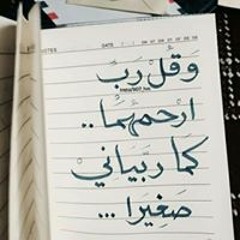 NOTES
DATE
وَقُلْ رَبِّ
ارْحمْهُمَا..
كَمَا ربَّيَانِيْ
صَغِيَرا...